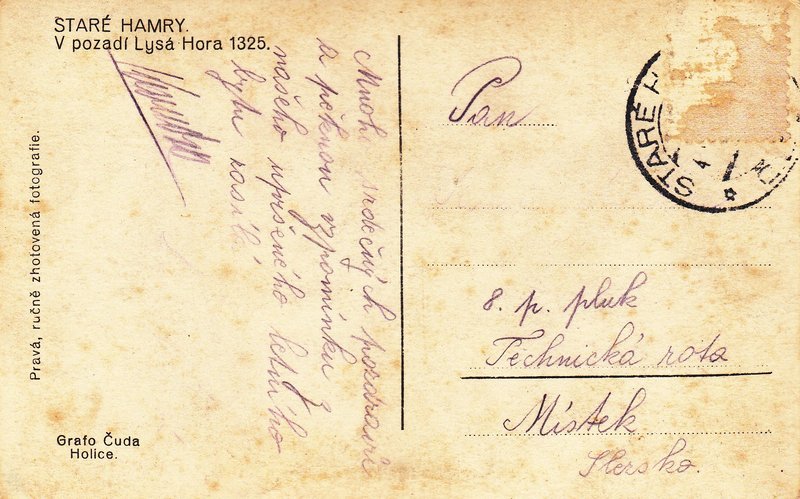 STARÉ HAMRY.
V pozadí Lysá Hora 1325.
Mnoho srdečných pozdravů
a pěknou vzpomínku z
našeho letního
bytu zasílá
Pravá, ručně zhotovená fotografie.
Grafo Čuda
Holice.
STARÉ
Pan
8. p. pluk
Technická rota
Místek
Slezsko.